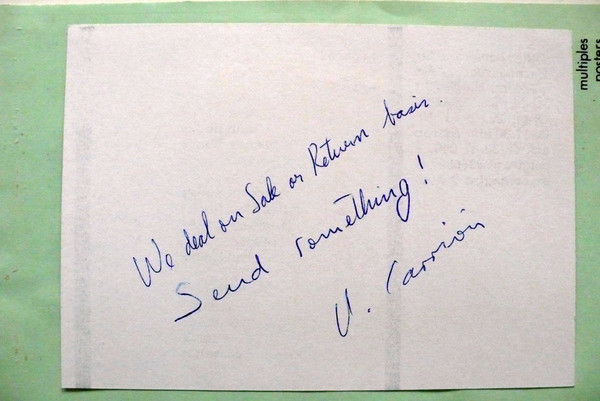 We deal on Sale or Return basis.
Send something!
U. Carrión
multiples
posters